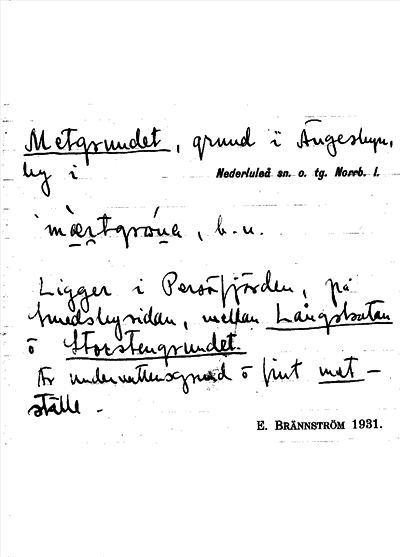 Metgrundet, grund i Ängesbyn,
by i Nederluleå sn. o. tg. Norrb. l.
mæ̀rtgrόna, b.u.
Ligger i Persöfjärden, på
Smedsbysidan, mellan Långslåtan
o Storstengrundet.
Är undervattensgrund o fint met-
ställe -
E. BRÄNNSTRÖM 1931.